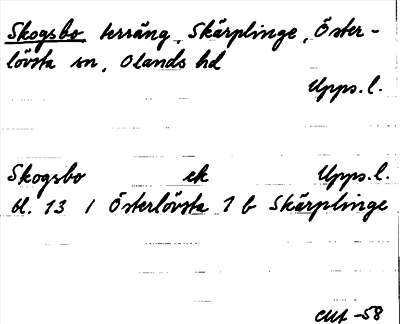 Skogsbo, terräng, Skärplinge, Öster-
lövsta sn, Olands hd
Upps. l.
Skogsbo ek Upps. l.
bl. 13 1 Österlövsta 7 b Skärplinge
-58